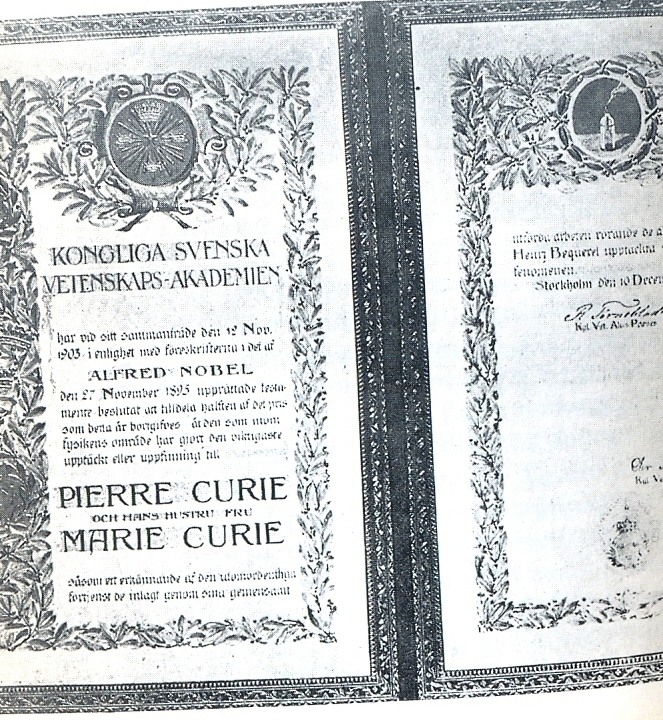 KONGLIGA SVENSKA
VETENSKAPS-AKADEMIEN
har vid sitt sammanträde den 12 Nov.
1903 i enlighet med föreskrifterna i det af
ALFRED NOBEL
den 27 November 1895 upprättade testa-
mente beslutat att tilldela hälften af det pris
som detta år bortgifves åt den som inom
fysikens område har gjort den viktigaste
upptäckt eller uppfinning till
PIERRE CURIE
OCH HANS HUSTRU FRU
MARIE CURIE
såsom ett erkännande af den utomordentliga
förtjenst de inlagt genom sina gemensamt
utförda arbeten rörande de a
Henri Bequerel upptäckta
fenomenen.
Stockholm den 10 Decem